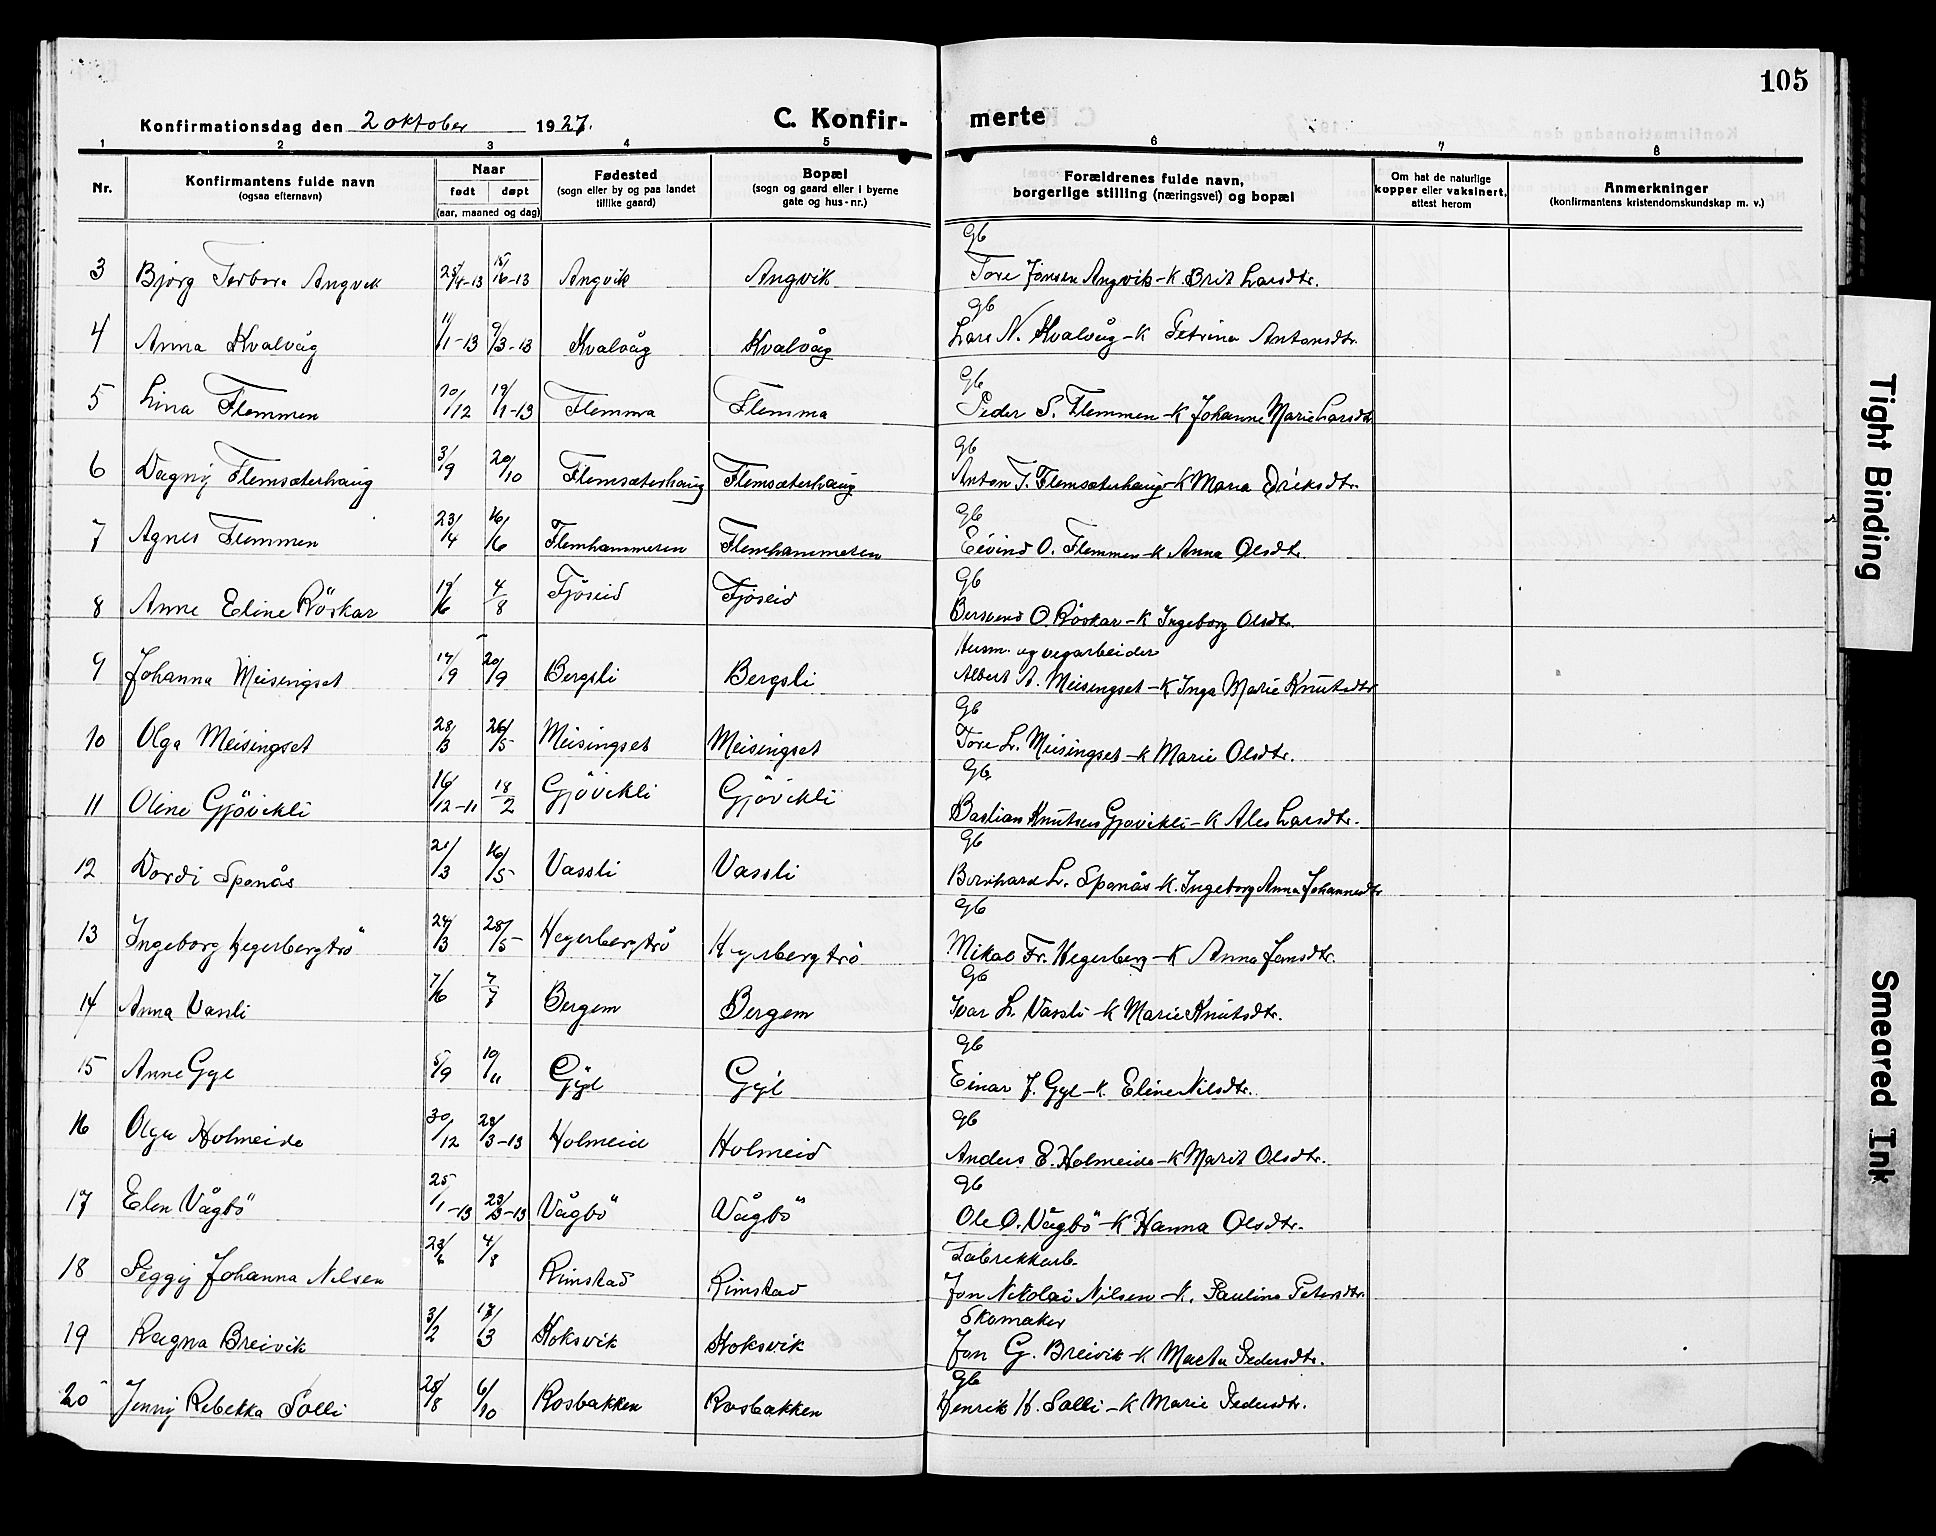 105
Konfirmationsdag den 2 oktober 1927.
C. Konfirmerte
1 2 3 4 5 6 7 8
Nr.
Konfirmantens fulde navn
(ogsaa efternavn)
Naar
født døpt
(aar, maaned og dag)
Fødested
(sogn eller by og paa landet
tillike gaard)
Bopæl
(sogn og gaard eller i byerne
gate og hus-nr.)
Forældrenes fulde navn,
borgerlige stilling (næringsvei) og bopæl
Om hat de naturlige
kopper eller vaksinert,
attest herom
Anmerkninger
(konfirmantens kristendomskundskap m. v.)
Gb
3 Bjørg Torbora Angvik 25/4-13 15/6-13 Angvik Angvik Tore Jonsen Angvik - K. Brit Larsdtr.
Gb
4 Anna Kvalvåg 11/1-13 9/3-13 Kvalvåg Kvalvåg Lars N. Kvalvåg - K Petrina Antonsdtr.
Gb
5 Lina Flemmen 20/12 19/1-13 Flemma Flemma Peder S. Flemmen - K Johanne Marie Larsdtr
Gb
6 Dagny Flemsæterhaug 3/9 20/10 Flemsæterhaug Flemsæterhaug Anton T. Flemsæterhaug - K Maria Eriksdtr.
Gb
7 Agnes Flemmen 23/4 16/6 Flemhammeren Flemhammeren Eivind O. Flemmen - K Anna Olsdtr.
Gb
8 Anne Eline Röskar 19/6 4/8 Fjöseid Fjöseid Bersvend O. Röskar - K Ingeborg Olsdtr.
Husm. og vegarbeider
9 Johanna Meisingset 17/9 20/9 Bergsli Bergsli Albert A. Meisingset - K Inga Marie Knutsdtr
Gb
10 Olga Meisingset 28/3 26/5 Meisingset Meisingset Tore L. Meisingset - K Marie Olsdtr.
Gb.
11 Oline Gjövikli 16/12-11 18/2 Gjövikli Gjövikli Bastian Knutsen Gjövikli - K Ales Larsdtr.
Gb
12 Dordi Spenås 21/3 16/5 Vassli Vassli Bernhard L. Spenås - K. Ingeborg Anna Johannesdtr
Gb
13 Ingeborg Hegerbergtrö 24/3 28/5 Hegerbergtrö Hegerbergtrö Mikal Fr. Hegerberg - K Anna Jensdtr.
Gb
14 Anna Vassli 7/6 7/7 Bergem Bergem Ivar L. Vassli - K Marie Knutsdtr.
Gb
15 Anne Gyl 5/9 10/11 Gyl Gyl Einar J. Gyl - K. Eline Nilsdtr.
Gb
16 Olga Holmeide 30/12 28/3-13 Holmeid Holmeid Anders E. Holmeide - K Marit Olsdtr.
Gb
17 Elen Vågbö 25/1-13 23/3-13 Vågbö Vågbö Ole O. Vågbö - K Hanna Olsdtr.
Fabrikkarb.
18 Siggy Johanna Nilsen 23/6 4/8 Rimstad Rimstad Jon Nikolai Nilsen - K. Pauline Petersdtr.
Skomaker
19 Ragna Breivik 3/2 17/3 Koksvik Koksvik Jon G. Breivik - K Marta Pedersdtr.
Gb
20 Jenny Rebekka Solli 25/8 6/10 Rosbakken Rosbakken Henrik H. Solli - K Marie Pedersdtr.
Tight Binding
Smeared Ink